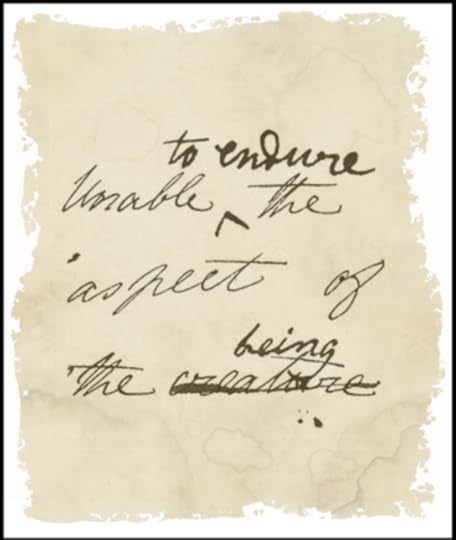 to endure
Unable ^ the
aspect of
being
the creature